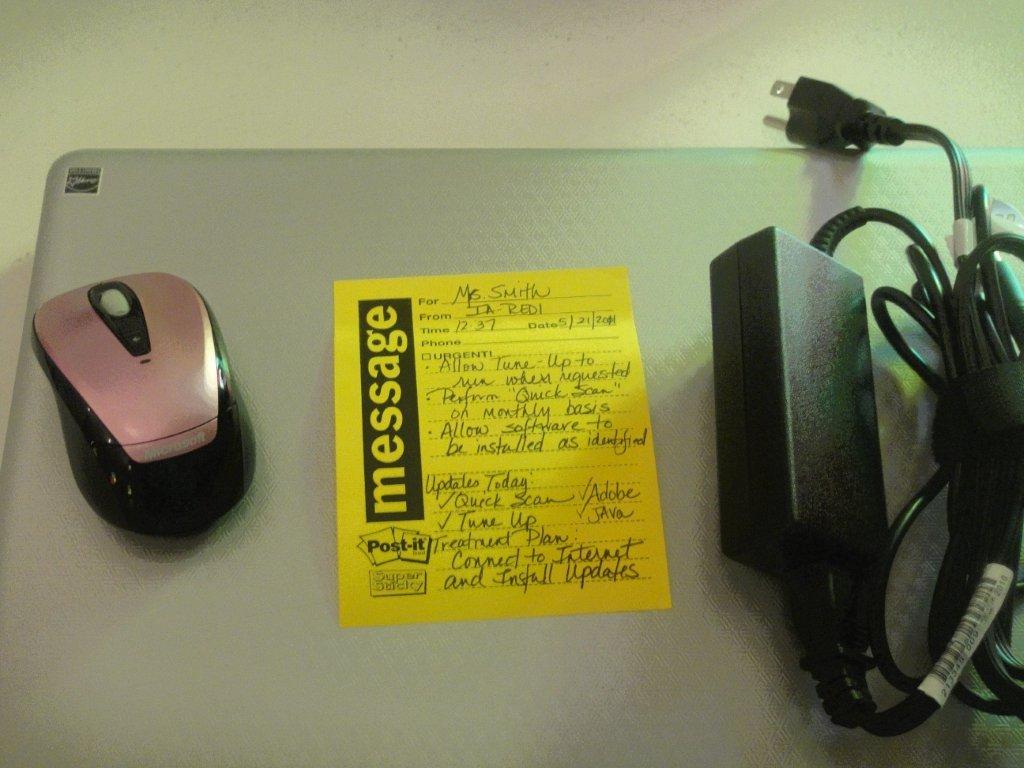 message
For Ms. Smith
From IA-REDI
Time 12:37 Date 5/21/2011
Phone
URGENT!
• Allow Tune-Up to
run when requested
• Perform "Quick Scan"
on monthly basis
• Allow software to
be installed as identified
Updates Today:
✓Quick Scan ✓Adobe
✓Tune Up ✓JAVA
Treatment Plan:
Connect to Internet
and Install Updates
Post-it
Super
Sticky
Microsoft